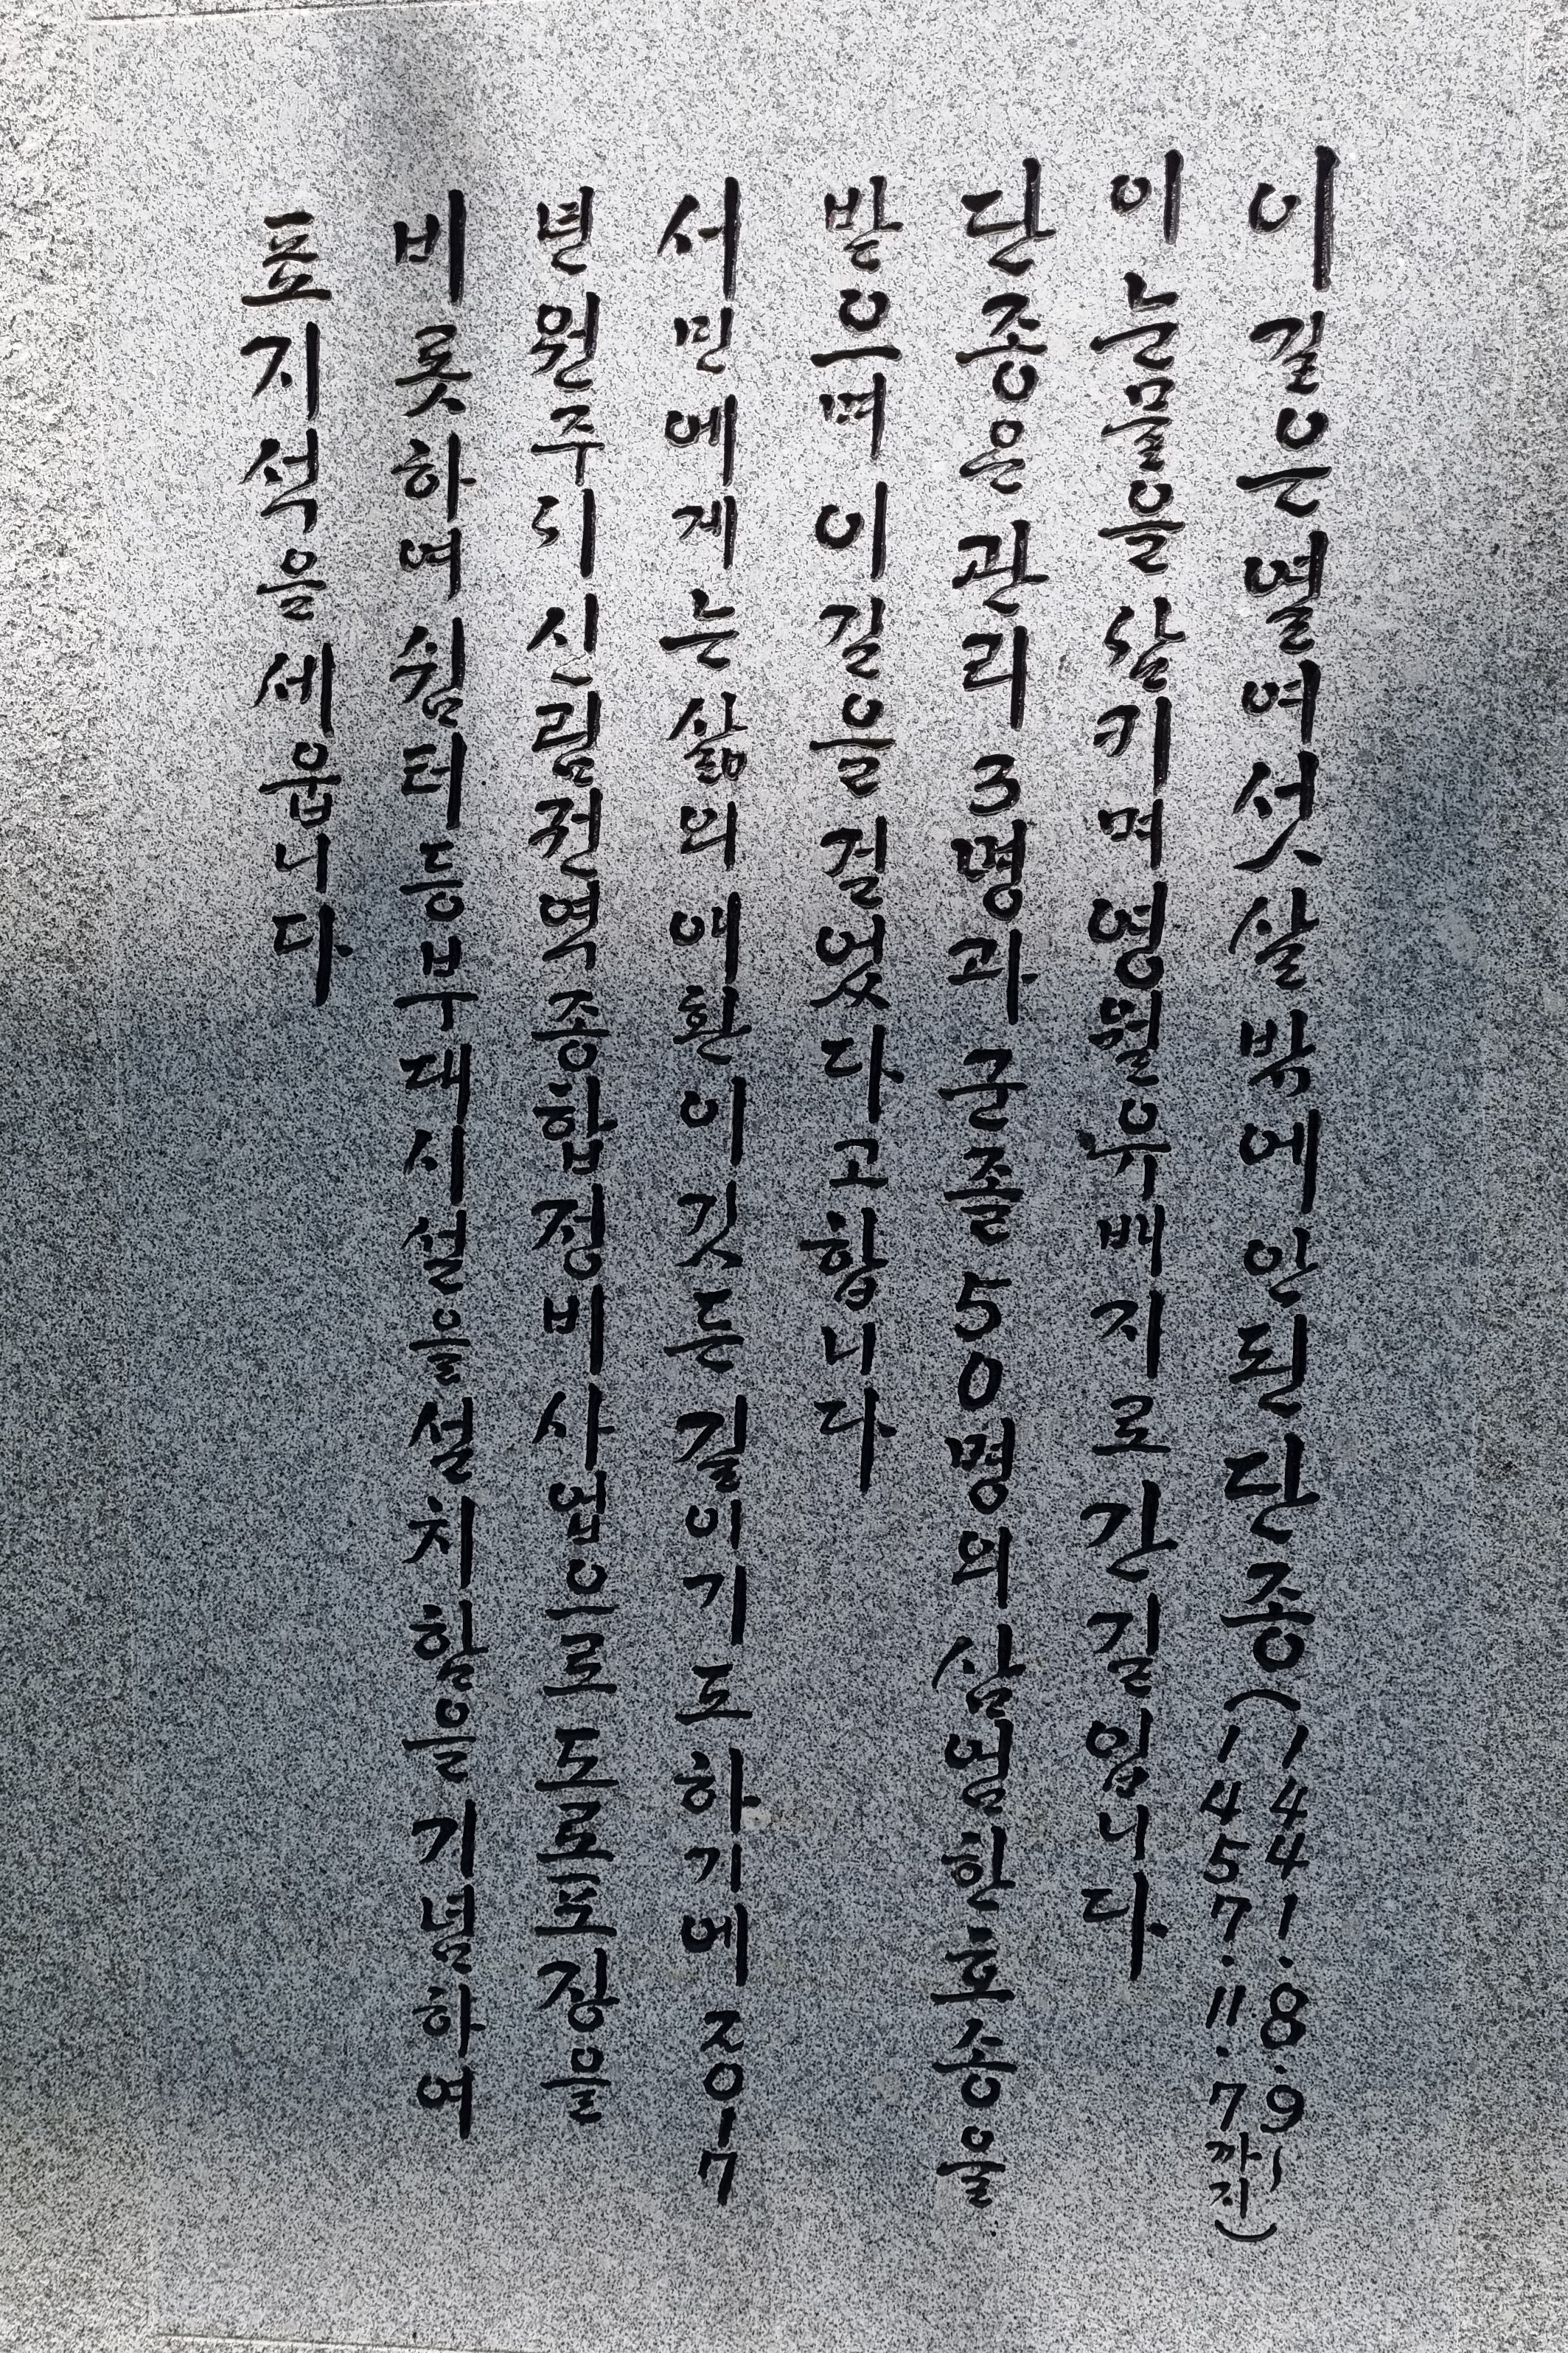 이길은열여섯살밖에안된단종(1441.8.9~1457.11.7까지)
이눈물을삼키며영월유배지로간길입니다
단종은관리3명과군졸50명의삼엄한호송을
받으며이길을걸었다고합니다
서민에게는삶의애환이깃든길이기도하기에2017
년원주시신림권역종합정비사업으로도로포장을
비롯하여쉼터등부대시설을설치함을기념하여
표지석을세웁니다